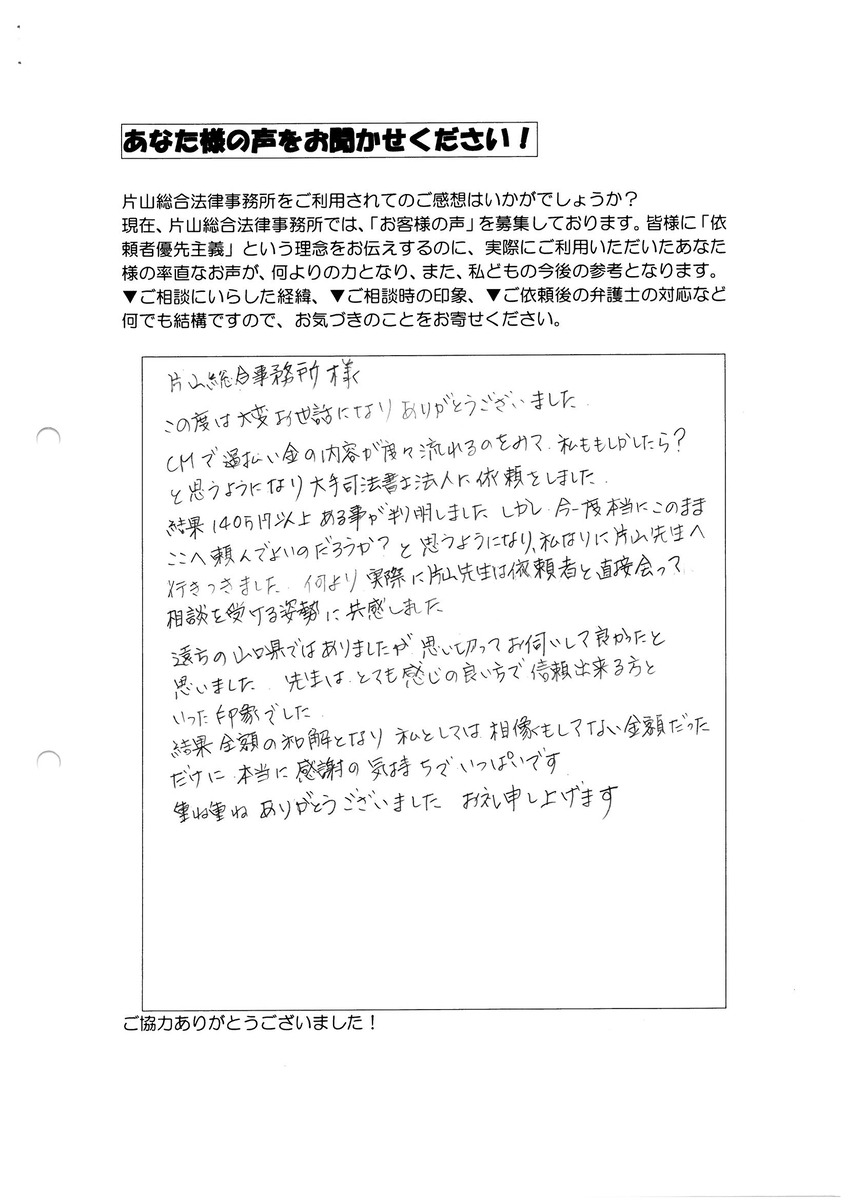 あなた様の声をお聞かせください！
片山総合法律事務所をご利用されてのご感想はいかがでしょうか？
現在、片山総合法律事務所では、「お客様の声」を募集しております。皆様に「依
頼者優先主義」という理念をお伝えするのに、実際にご利用いただいたあなた
様の率直なお声が、何よりの力となり、また、私どもの今後の参考となります。
▼ご相談にいらした経緯、▼ご相談時の印象、▼ご依頼後の弁護士の対応など
何でも結構ですので、お気づきのことをお寄せください。
片山総合事務所様
この度は大変お世話になりありがとうございました.
CMで過払い金の内容が度々流れるのをみて、私ももしかしたら？
と思うようになり大手司法書士法人に依頼をしました.
結果140万円以上ある事が判明しました しかし今一度本当にこのまま
ここへ頼んでよいのだろうか？と思うようになり、私なりに片山先生へ
行きつきました. 何より実際に片山先生は依頼者と直接会って
相談を受ける姿勢に共感しました
遠ちの山口県ではありましたが思い切ってお伺いして良かったと
思いました 先生はとても感じの良い方で信頼出来る方と
いった印象でした.
結果全額の和解となり私としては相像もしてない金額だった
だけに本当に感謝の気持ちでいっぱいです
重ね重ねありがとうございました お礼申し上げます
ご協力ありがとうございました！